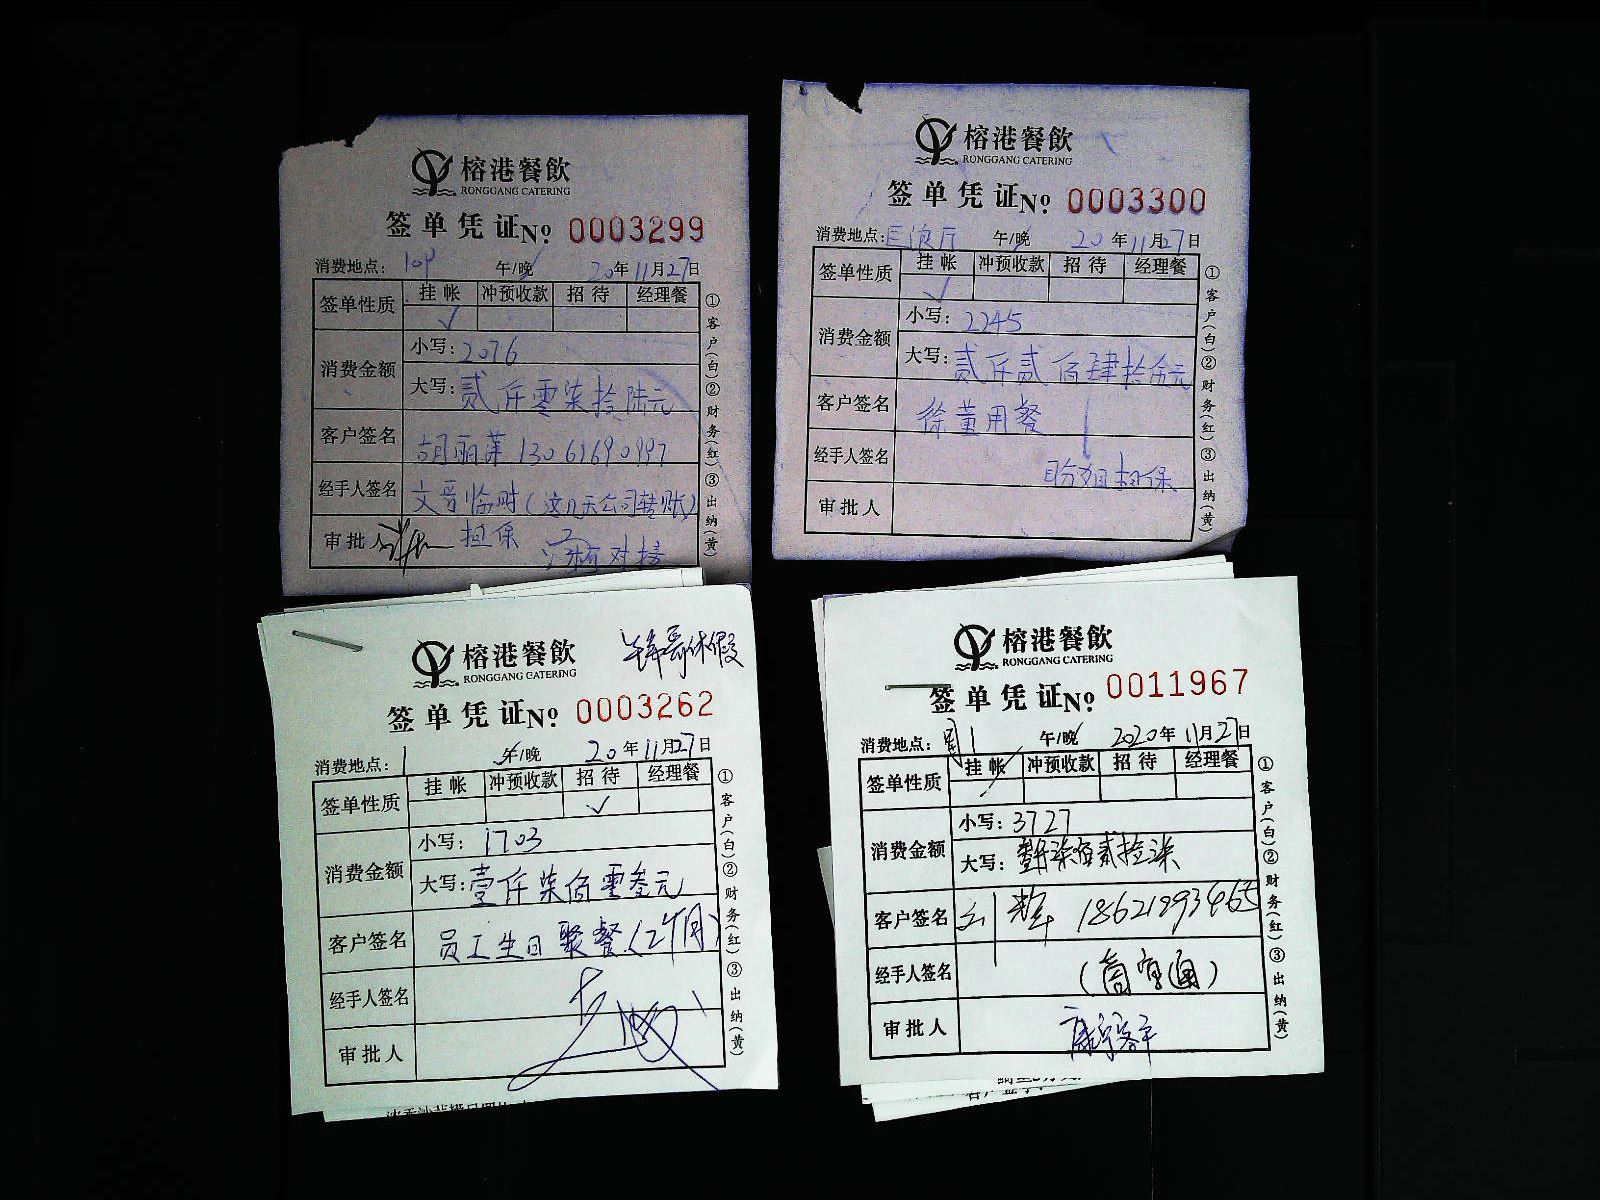 榕港餐飲
RONGGANG CATERING
签单凭证№ 0003299
消费地点: 109 午/晚 20年11月27日
签单性质 挂帐 冲预收款 招待 经理餐
√
消费金额 小写: 2076
大写: 贰仟零柒拾陆元
客户签名 胡丽萍
经手人签名 文哥临时(这几天公司转账)
审批人 担保 对接
①客户(白)②财务(红)③出纳(黄)
榕港餐飲
RONGGANG CATERING
签单凭证№ 0003300
消费地点: 午/晚 20年11月27日
签单性质 挂帐 冲预收款 招待 经理餐
√
消费金额 小写: 2245
大写: 贰仟贰佰肆拾伍元
客户签名 徐董用餐
经手人签名 担保
审批人
①客户(白)②财务(红)③出纳(黄)
榕港餐飲
RONGGANG CATERING
哥休假
签单凭证№ 0003262
消费地点: 1 午/晚 20年11月27日
签单性质 挂帐 冲预收款 招待 经理餐
√
消费金额 小写: 1703
大写: 壹仟柒佰零叁元
客户签名 员工生日聚餐(2个月)
经手人签名
审批人
①客户(白)②财务(红)③出纳(黄)
榕港餐飲
RONGGANG CATERING
签单凭证№ 0011967
消费地点: 1 午/晚 2020年11月27日
签单性质 挂帐 冲预收款 招待 经理餐
消费金额 小写: 3727
大写: 叁仟柒佰贰拾柒
客户签名 18621293465
经手人签名
审批人
①客户(白)②财务(红)③出纳(黄)